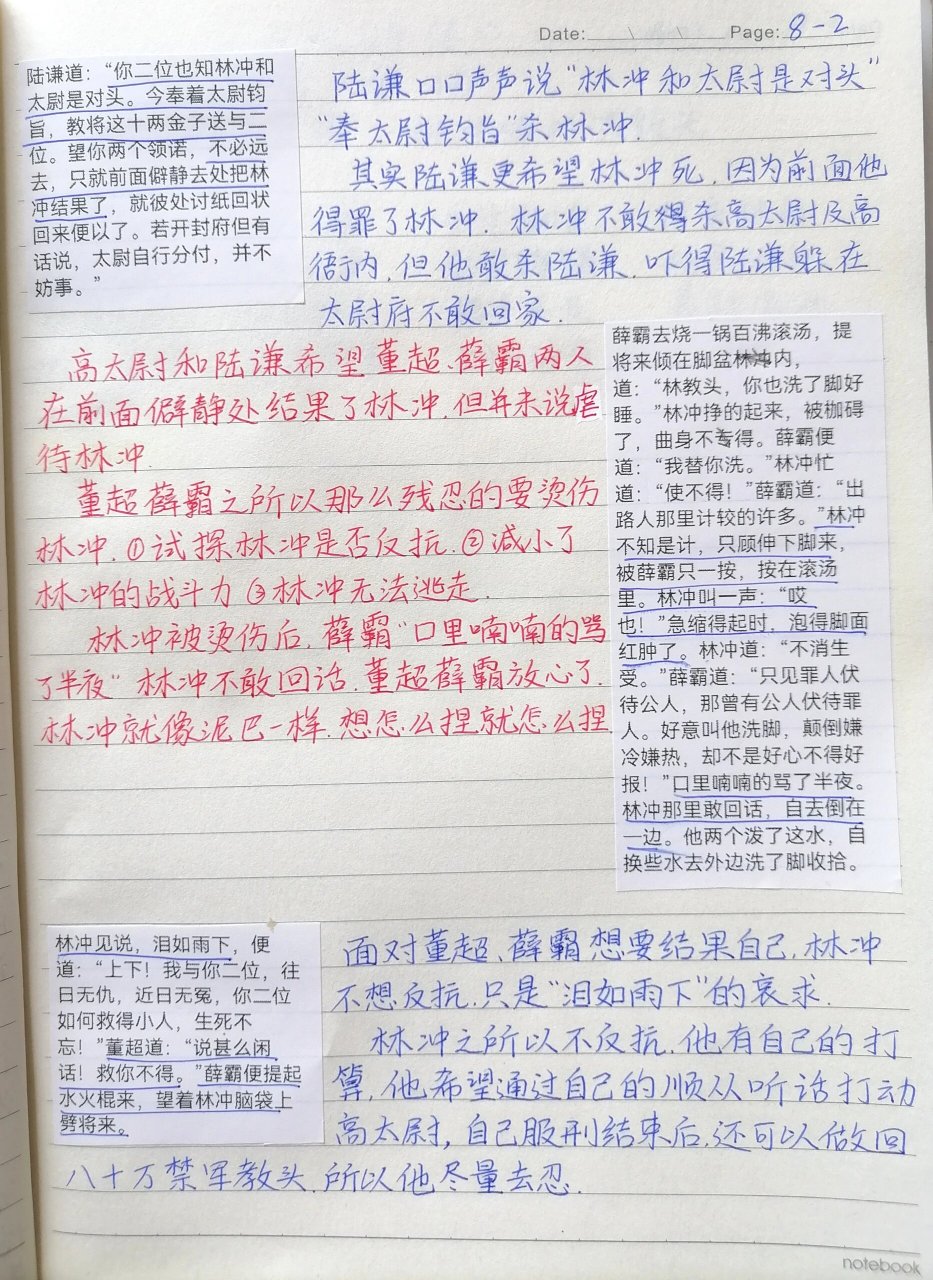 Date: \ \ Page: 8-2
陆谦道：“你二位也知林冲和
太尉是对头。今奉着太尉钧
旨，教将这十两金子送与二
位。望你两个领诺，不必远
去，只就前面僻静去处把林
冲结果了，就彼处讨纸回状
回来便以了。若开封府但有
话说，太尉自行分付，并不
妨事。”
陆谦口口声声说“林冲和太尉是对头”
“奉太尉钧旨”杀林冲.
其实陆谦更希望林冲死.因为前面他
得罪了林冲.林冲不敢得杀高太尉及高
衙内.但他敢杀陆谦.吓得陆谦躲在
太尉府不敢回家.
高太尉和陆谦希望董超、薛霸两人
在前面僻静处结果了林冲.但并未说虐
待林冲.
董超薛霸之所以那么残忍的要烫伤
林冲.①试探林冲是否反抗.②减小了
林冲的战斗力③林冲无法逃走.
林冲被烫伤后.薛霸“口里喃喃的骂
了半夜”林冲不敢回话.董超薛霸放心了.
林冲就像泥巴一样.想怎么捏就怎么捏.
薛霸去烧一锅百沸滚汤，提
将来倾在脚盆林冲内，
道：“林教头，你也洗了脚好
睡。”林冲挣的起来，被枷碍
了，曲身不专得。薛霸便
道：“我替你洗。”林冲忙
道：“使不得！”薛霸道：“出
路人那里计较的许多。”林冲
不知是计，只顾伸下脚来，
被薛霸只一按，按在滚汤
里。林冲叫一声：“哎
也！”急缩得起时，泡得脚面
红肿了。林冲道：“不消生
受。”薛霸道：“只见罪人伏
待公人，那曾有公人伏待罪
人。好意叫他洗脚，颠倒嫌
冷嫌热，却不是好心不得好
报！”口里喃喃的骂了半夜。
林冲那里敢回话，自去倒在
一边。他两个泼了这水，自
换些水去外边洗了脚收拾。
林冲见说，泪如雨下，便
道：“上下！我与你二位，往
日无仇，近日无冤，你二位
如何救得小人，生死不
忘！”董超道：“说甚么闲
话！救你不得。”薛霸便提起
水火棍来，望着林冲脑袋上
劈将来。
面对董超、薛霸想要结果自己.林冲
不想反抗.只是“泪如雨下”的哀求.
林冲之所以不反抗.他有自己的打
算.他希望通过自己的顺从听话打动
高太尉，自己服刑结束后.还可以做回
八十万禁军教头.所以他尽量去忍.
notebook